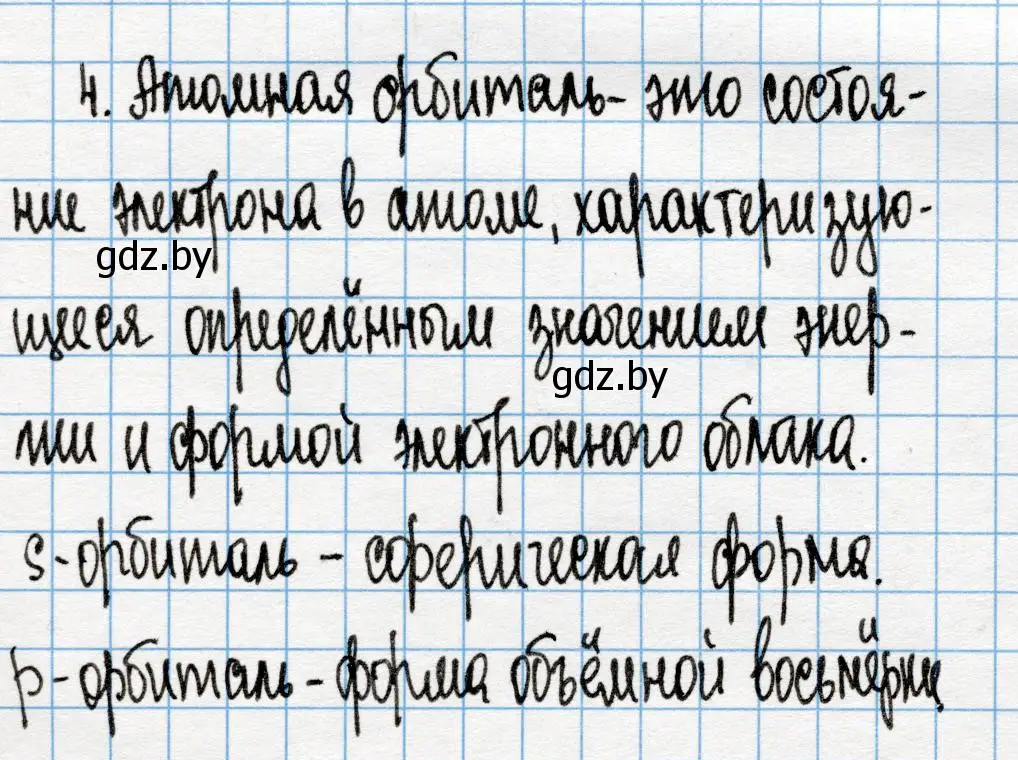 4. Атомная орбиталь- это состоя-
ние электрона в атоме, характеризую-
gdz.by
щееся определённым значением энер-
gdz.by
гии и формой электронного облака.
s-орбиталь - сферическая форма.
p-орбиталь - форма объёмной восьмёрки.